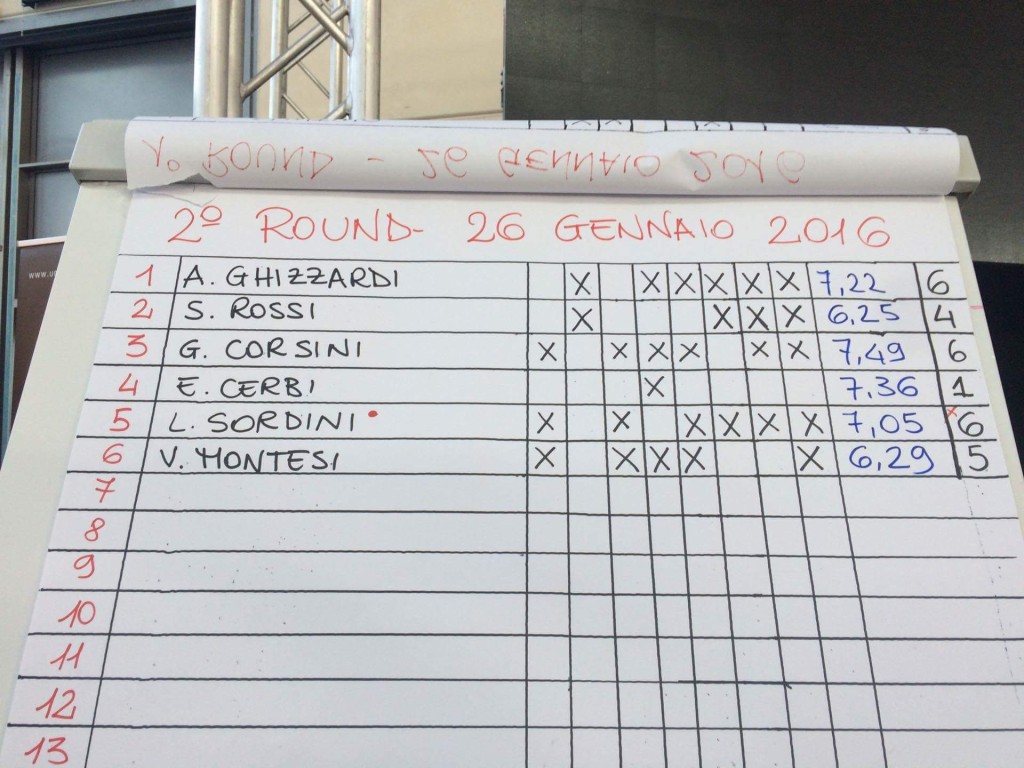 1º ROUND - 26 GENNAIO 2016
2º ROUND- 26 GENNAIO 2016
1 A. GHIZZARDI X X X X X X 7,22 6
2 S. ROSSI X X X X 6,25 4
3 G. CORSINI X X X X X X 7,49 6
4 E. CERBI X 7.36 1
5 L. SORDINI • X X X X X X 7,05 x 6
6 V. MONTESI X X X X X 6,29 5
7
8
9
10
11
12
13